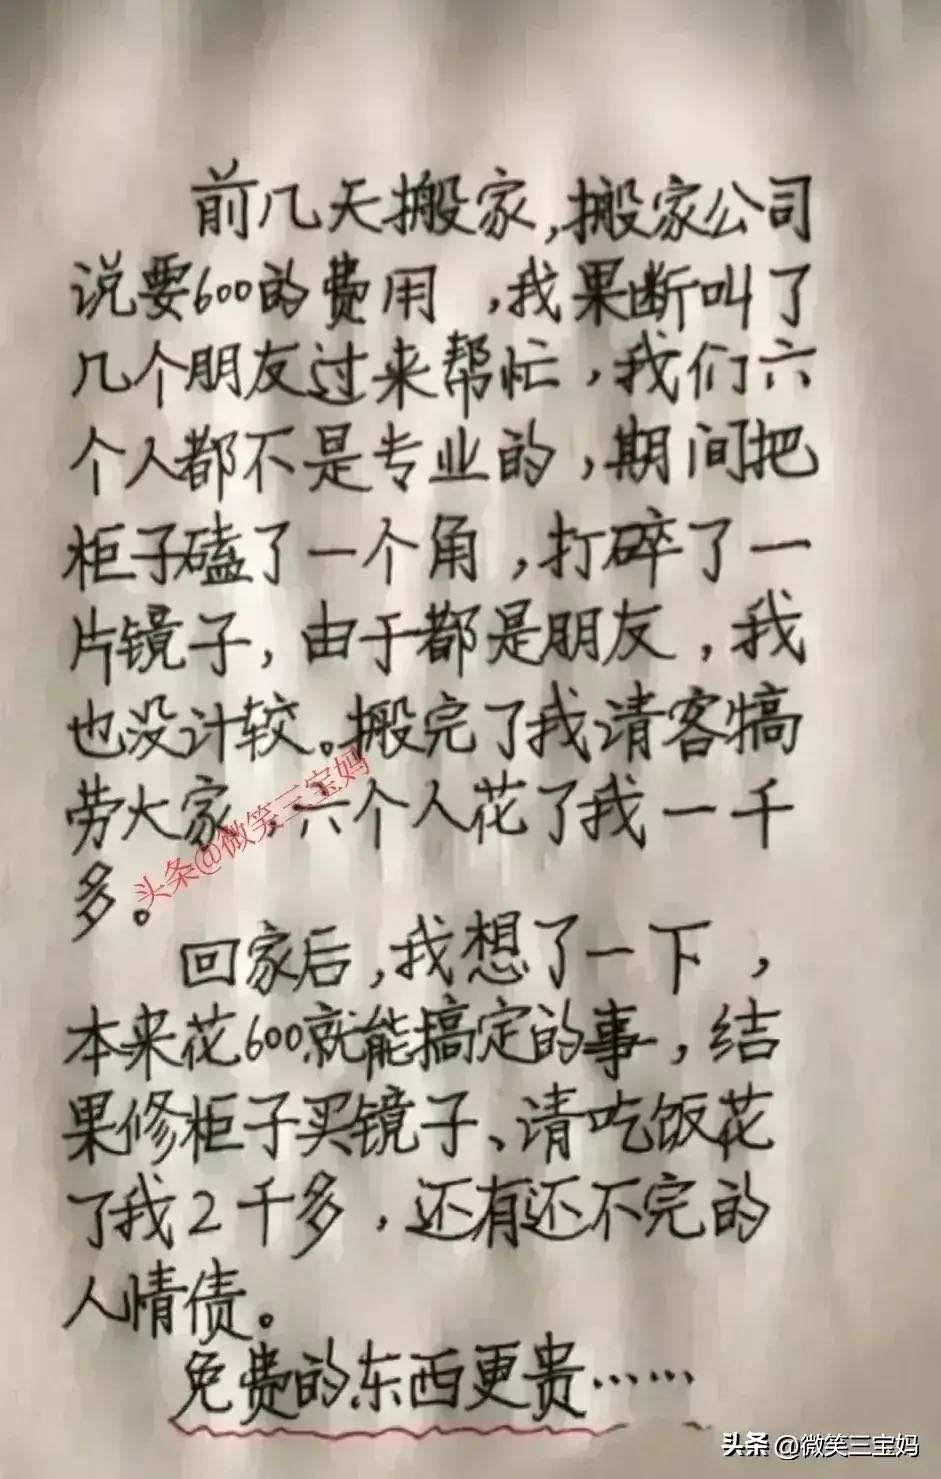 前几天搬家,搬家公司
说要600的费用,我果断叫了
几个朋友过来帮忙,我们六
个人都不是专业的,期间把
柜子磕了一个角,打碎了一
片镜子,由于都是朋友,我
也没计较。搬完了我请客犒
劳大家,六个人花了我一千
多。
头条@微笑三宝妈
回家后,我想了一下,
本来花600就能搞定的事,结
果修柜子买镜子、请吃饭花
了我2千多,还有还不完的
人情债。
免费的东西更贵……
头条 @微笑三宝妈